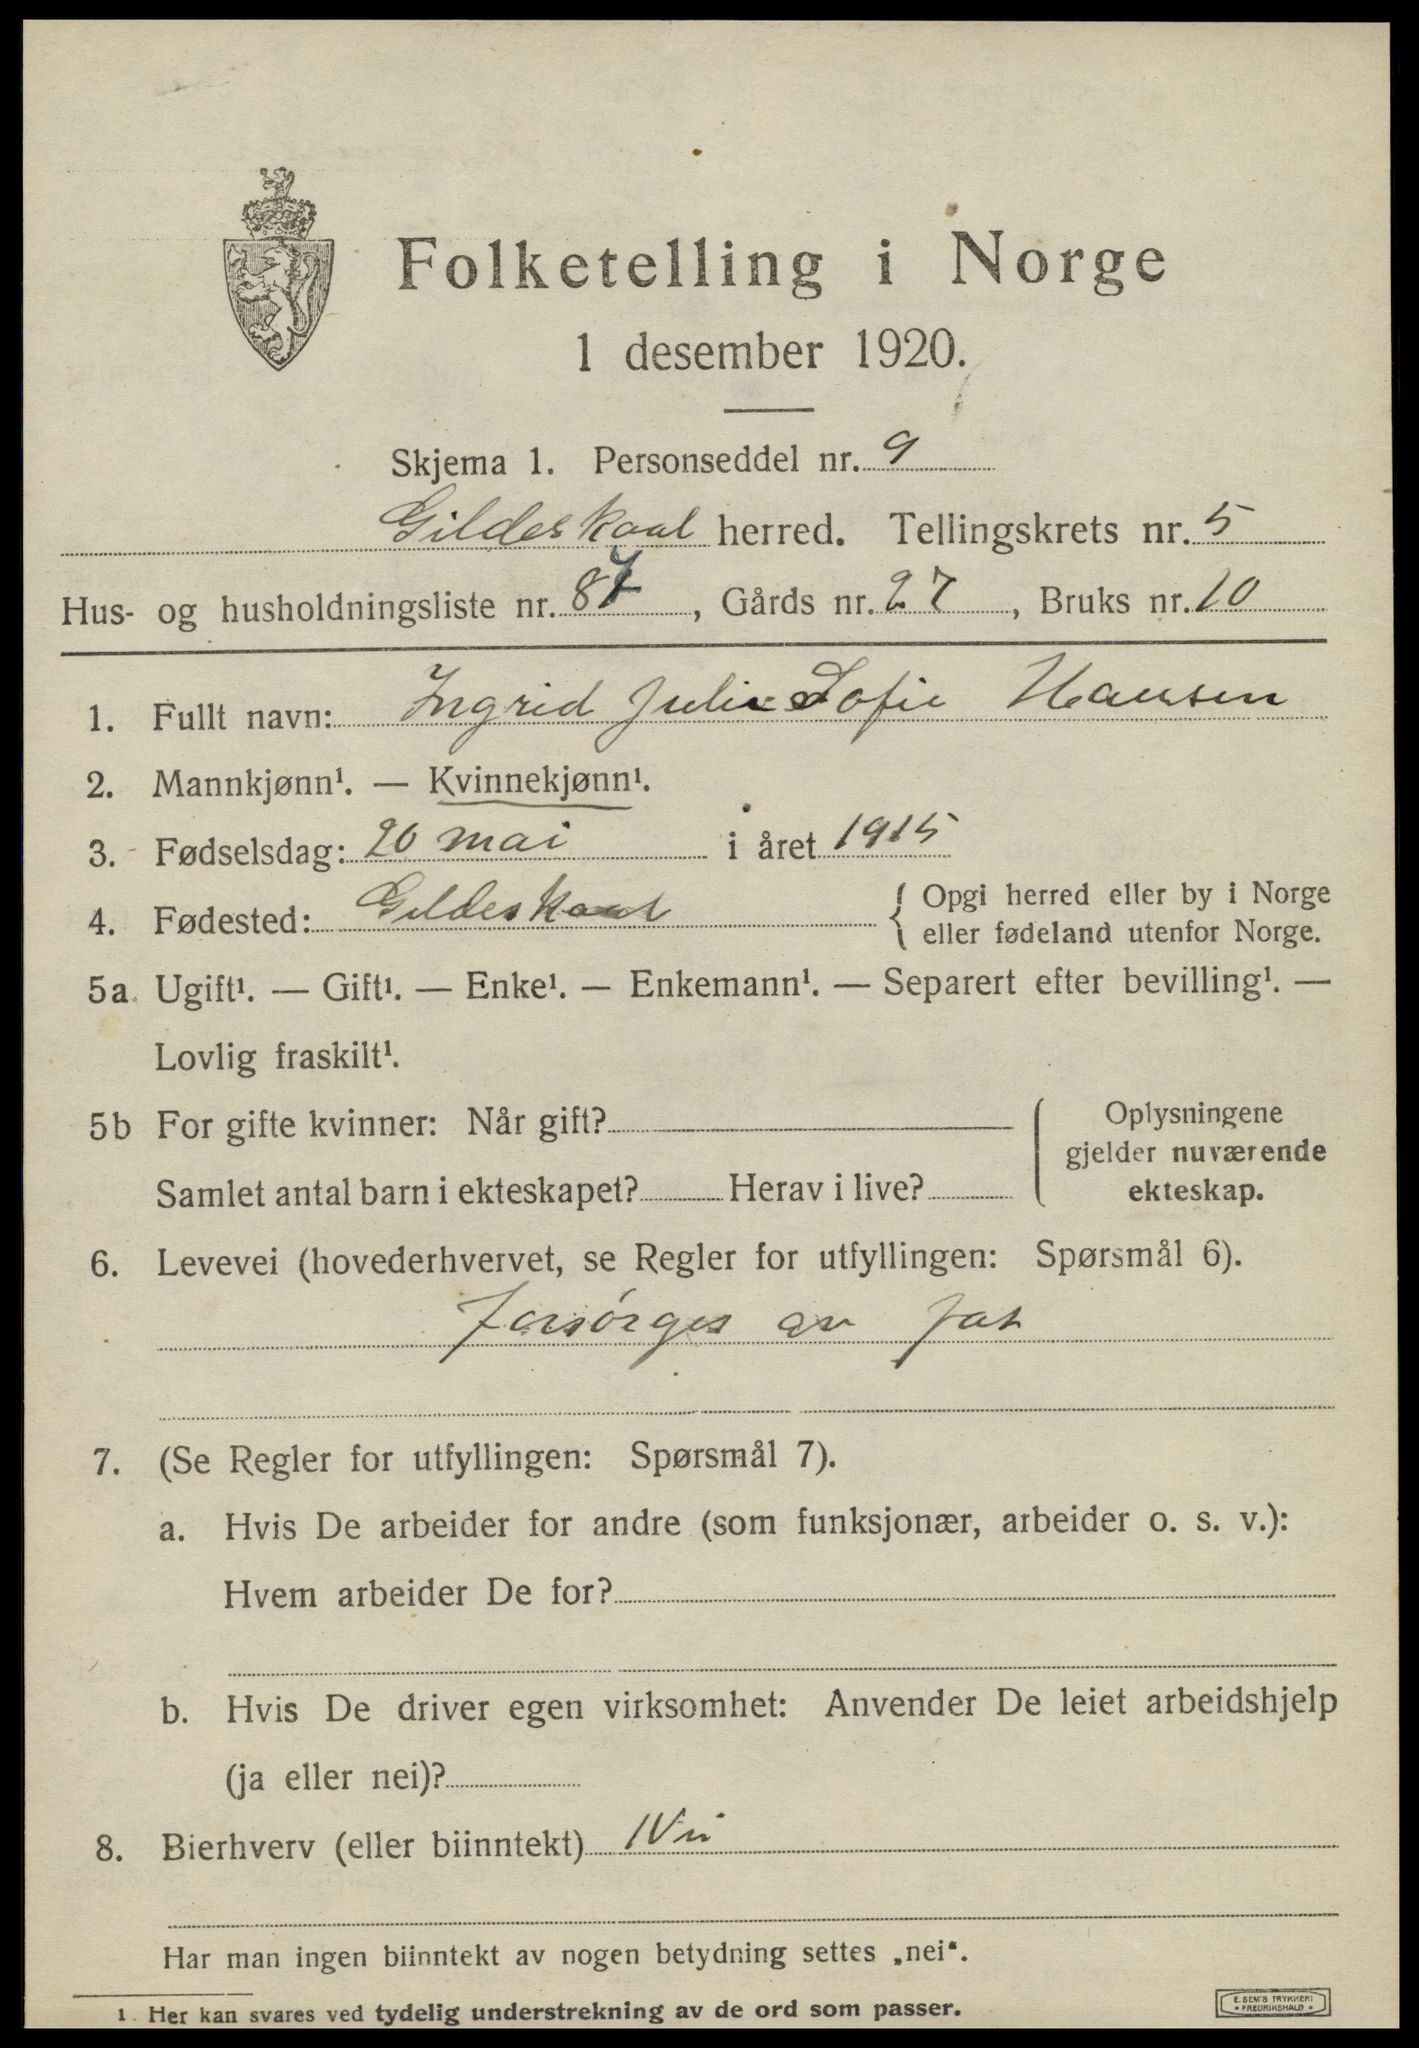 Folketelling i Norge
1 desember 1920.
Skjema 1. Personseddel nr. 9
Gildeskaal herred. Tellingskrets nr. 5
Hus- og husholdningsliste nr. 87, Gårds nr. 27, Bruks nr. 10
1. Fullt navn: Ingrid Julie Sofie Hansen
2. Mannkjønn¹. — Kvinnekjønn¹.
3. Fødselsdag: 20 mai i året 1915
4. Fødested: Gildeskaal { Opgi herred eller by i Norge
eller fødeland utenfor Norge.
5a. Ugift¹. — Gift¹. — Enke¹. — Enkemann¹. — Separert efter bevilling¹. —
Lovlig fraskilt¹.
5b For gifte kvinner: Når gift?
Samlet antal barn i ekteskapet? Herav i live?
Oplysningene
gjelder nuværende
ekteskap.
6. Levevei (hovederhvervet, se Regler for utfyllingen: Spørsmål 6).
Forsørges av far
7. (Se Regler for utfyllingen: Spørsmål 7).
a. Hvis De arbeider for andre (som funksjonær, arbeider o. s. v.):
Hvem arbeider De for?
b. Hvis De driver egen virksomhet: Anvender De leiet arbeidshjelp
(ja eller nei)?
8. Bierhverv (eller biinntekt) Nei
Har man ingen biinntekt av nogen betydning settes „nei“.
1. Her kan svares ved tydelig understrekning av de ord som passer.
E. SEM'S TRYKKERI
• FREDRIKSHALD •